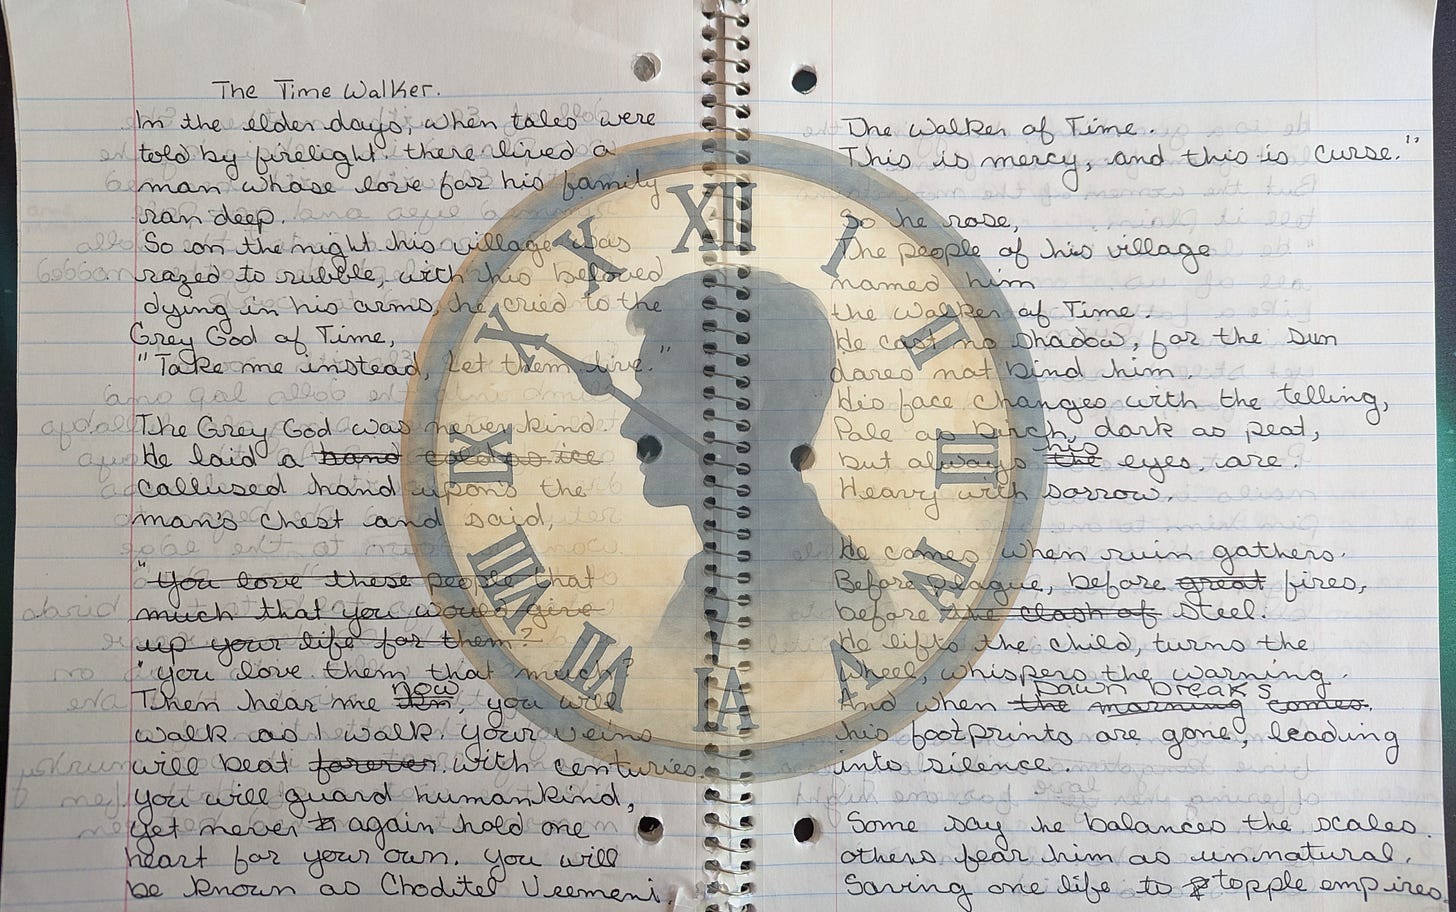 The Time Walker.
In the elder days, when tales were
told by firelight. there lived a
man whose love for his family
ran deep.
So on the night his village was
razed to rubble, with his beloved
dying in his arms, he cried to the
Grey God of Time,
"Take me instead, Let them live."
The Grey God was never kind
He laid a hand cold as ice
callused hand upon's the
man's chest and said,
"You love these people that
much that you would give
up your life for them?
"You love them that much?
now
Then hear me, you will
walk as I walk. Your veins
will beat forever. with centuries.
You will guard humankind,
yet never again hold one
heart for your own. You will
be known as Choditel Vremeni.
The Walker of Time.
This is mercy, and this is curse."
So he rose,
The people of his village
named him
the Walker of Time.
He cast no shadow, for the sun
dares not bind him.
His face changes with the telling,
Pale as birch, dark as peat,
his
but always the eyes. are.
Heavy with sorrow.
He comes when ruin gathers.
Before plague, before great fires,
before the clash of steel.
He lifts the child, turns the
wheel, whispers the warning.
Dawn breaks
And when the morning comes.
his footprints are gone, leading
into silence.
Some say he balances the scales.
others fear him as unnatural.
Saving one life to topple empires
XII
I
II
III
IV
V
VI
VII
VIII
IX
X
X